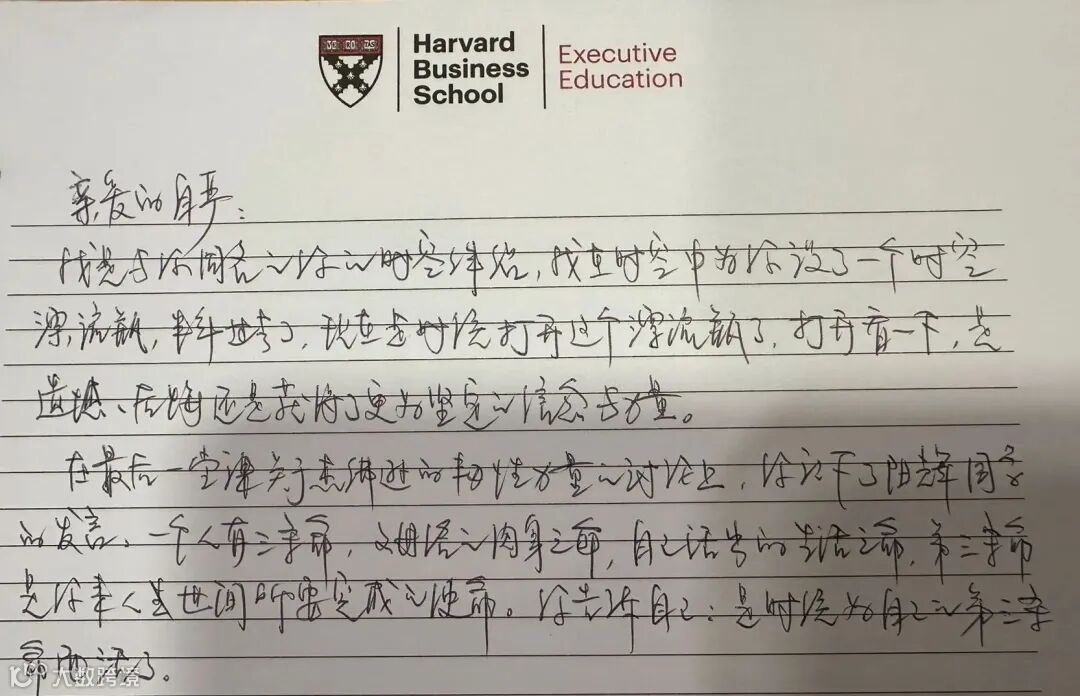 Harvard Business School
Executive Education
亲爱的自严：
我是与你同名的你的时空伴侣，我在时空中为你设了一个时空
漂流瓶，半年过去了，现在是时候打开这个漂流瓶了，打开看一下，是
遗憾、后悔还是获得了更为坚定的信念与力量。
在最后一堂课关于杰佛逊的韧性力量的讨论上，你记下了阳辉同学
的发言、一个人有三条命，父母给的肉身之命，自己活出的生活之命，第三条命
是你来人生世间所要完成的使命。你告诉自己：是时候为自己的第三条
命而活了。
大数跨境